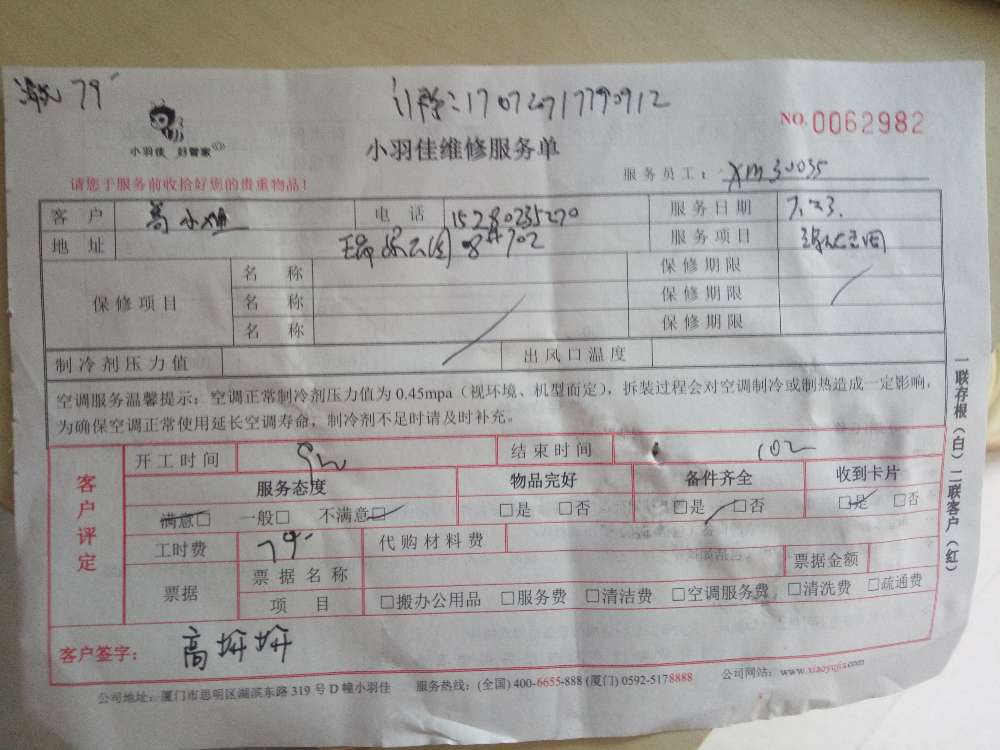 79
17072917790912
NO.0062982
小羽佳 好管家
小羽佳维修服务单
请您于服务前收拾好您的贵重物品！
服务员工：XM30035
客户 高小姐 电话 15280235270 服务日期 7.23.
地址 702 服务项目
保修项目 名称 保修期限
名称 保修期限
名称 保修期限
制冷剂压力值 出风口温度
空调服务温馨提示：空调正常制冷剂压力值为 0.45mpa（视环境、机型而定），拆装过程会对空调制冷或制热造成一定影响，
为确保空调正常使用延长空调寿命，制冷剂不足时请及时补充。
客户评定
开工时间 结束时间
服务态度 物品完好 备件齐全 收到卡片
满意□ 一般□ 不满意□ □是 □否 □是 □否 □是 □否
工时费 79. 代购材料费
票据 票据名称 票据金额
项目 □搬办公用品 □服务费 □清洁费 □空调服务费 □清洗费 □疏通费
客户签字：高妍妍
公司地址：厦门市思明区湖滨东路 319 号 D 幢小羽佳 服务热线：(全国) 400-6655-888 (厦门) 0592-5178888 公司网站：www.xiaoyujia.com
一联存根（白）二联客户（红）